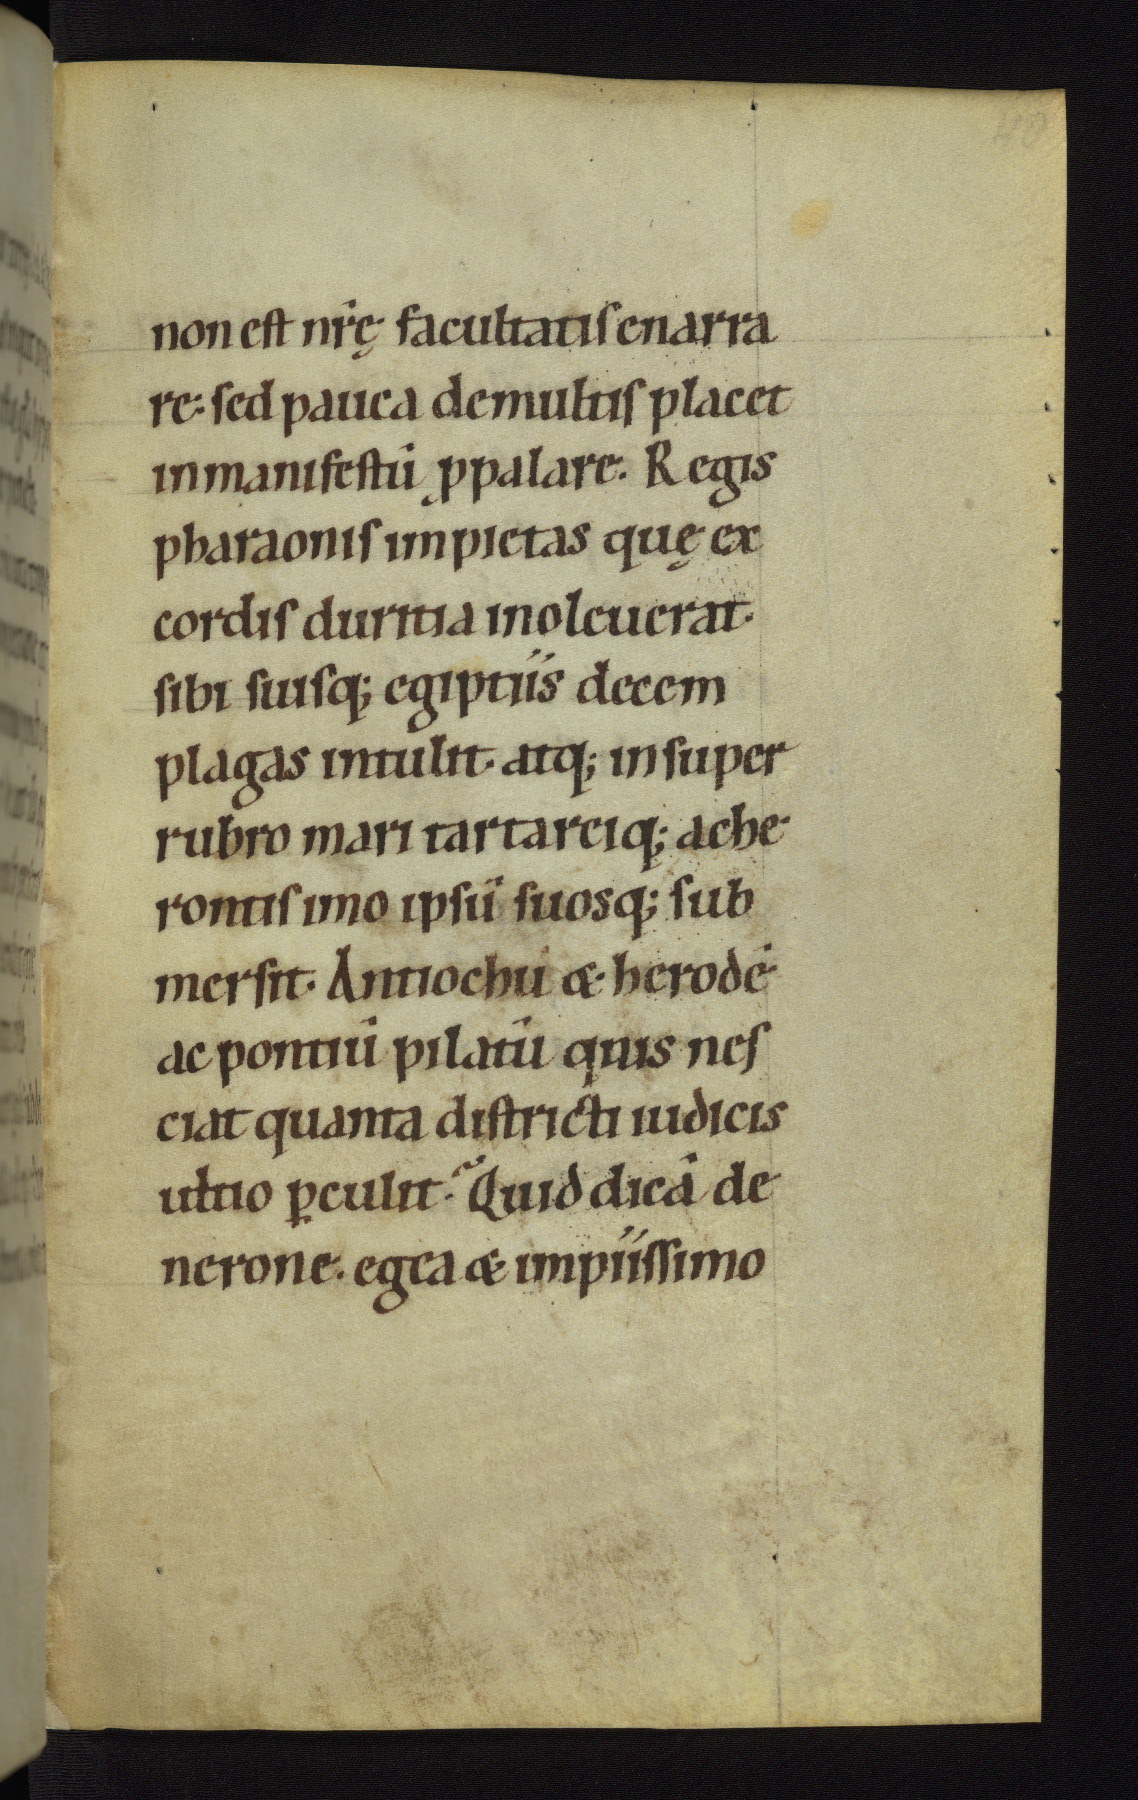 non est nr̃ę facultatis enarra
re: sed pauca de multis placet
in manifestū ꝓpalare. Regis
pharaonis impietas quę ex
cordis duritia inoleuerat.
sibi suisq; egiptiis decem
plagas intulit. atq; insuper
rubro mari tartareiq; ache
rontis imo ipsū suosq; sub
mersit. Antiochū & herodē
ac pontiū pilatū quis nes
ciat quanta districti iudicis
ultio ꝑculit? Quid dicā de
nerone. egea & impiissimo